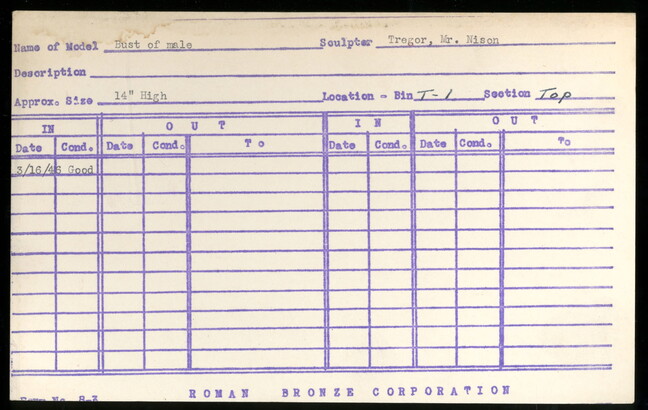 Name of Model Bust of male Sculptor Tregor, Mr. Nison
Description
Approx. Size 14" High Location - Bin T-1 Section Top
IN OUT IN OUT
Date Cond. Date Cond. To Date Cond. Date Cond. To
3/16/46 Good
Form No. S-3 ROMAN BRONZE CORPORATION